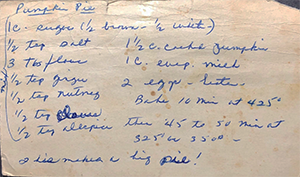 Pumpkin Pie
1 c. sugar (1/2 brown - 1/2 white)
1/2 tsp salt 1 1/2 c. cooked pumpkin
3 tbs flour 1 c. evap. milk
1/2 tsp ginger 2 eggs - beaten
1/2 tsp nutmeg Bake 10 min at 425°
1/2 tsp cloves then 45 to 50 min at
1/2 tsp allspice 325° or 350°
makes a big pie!